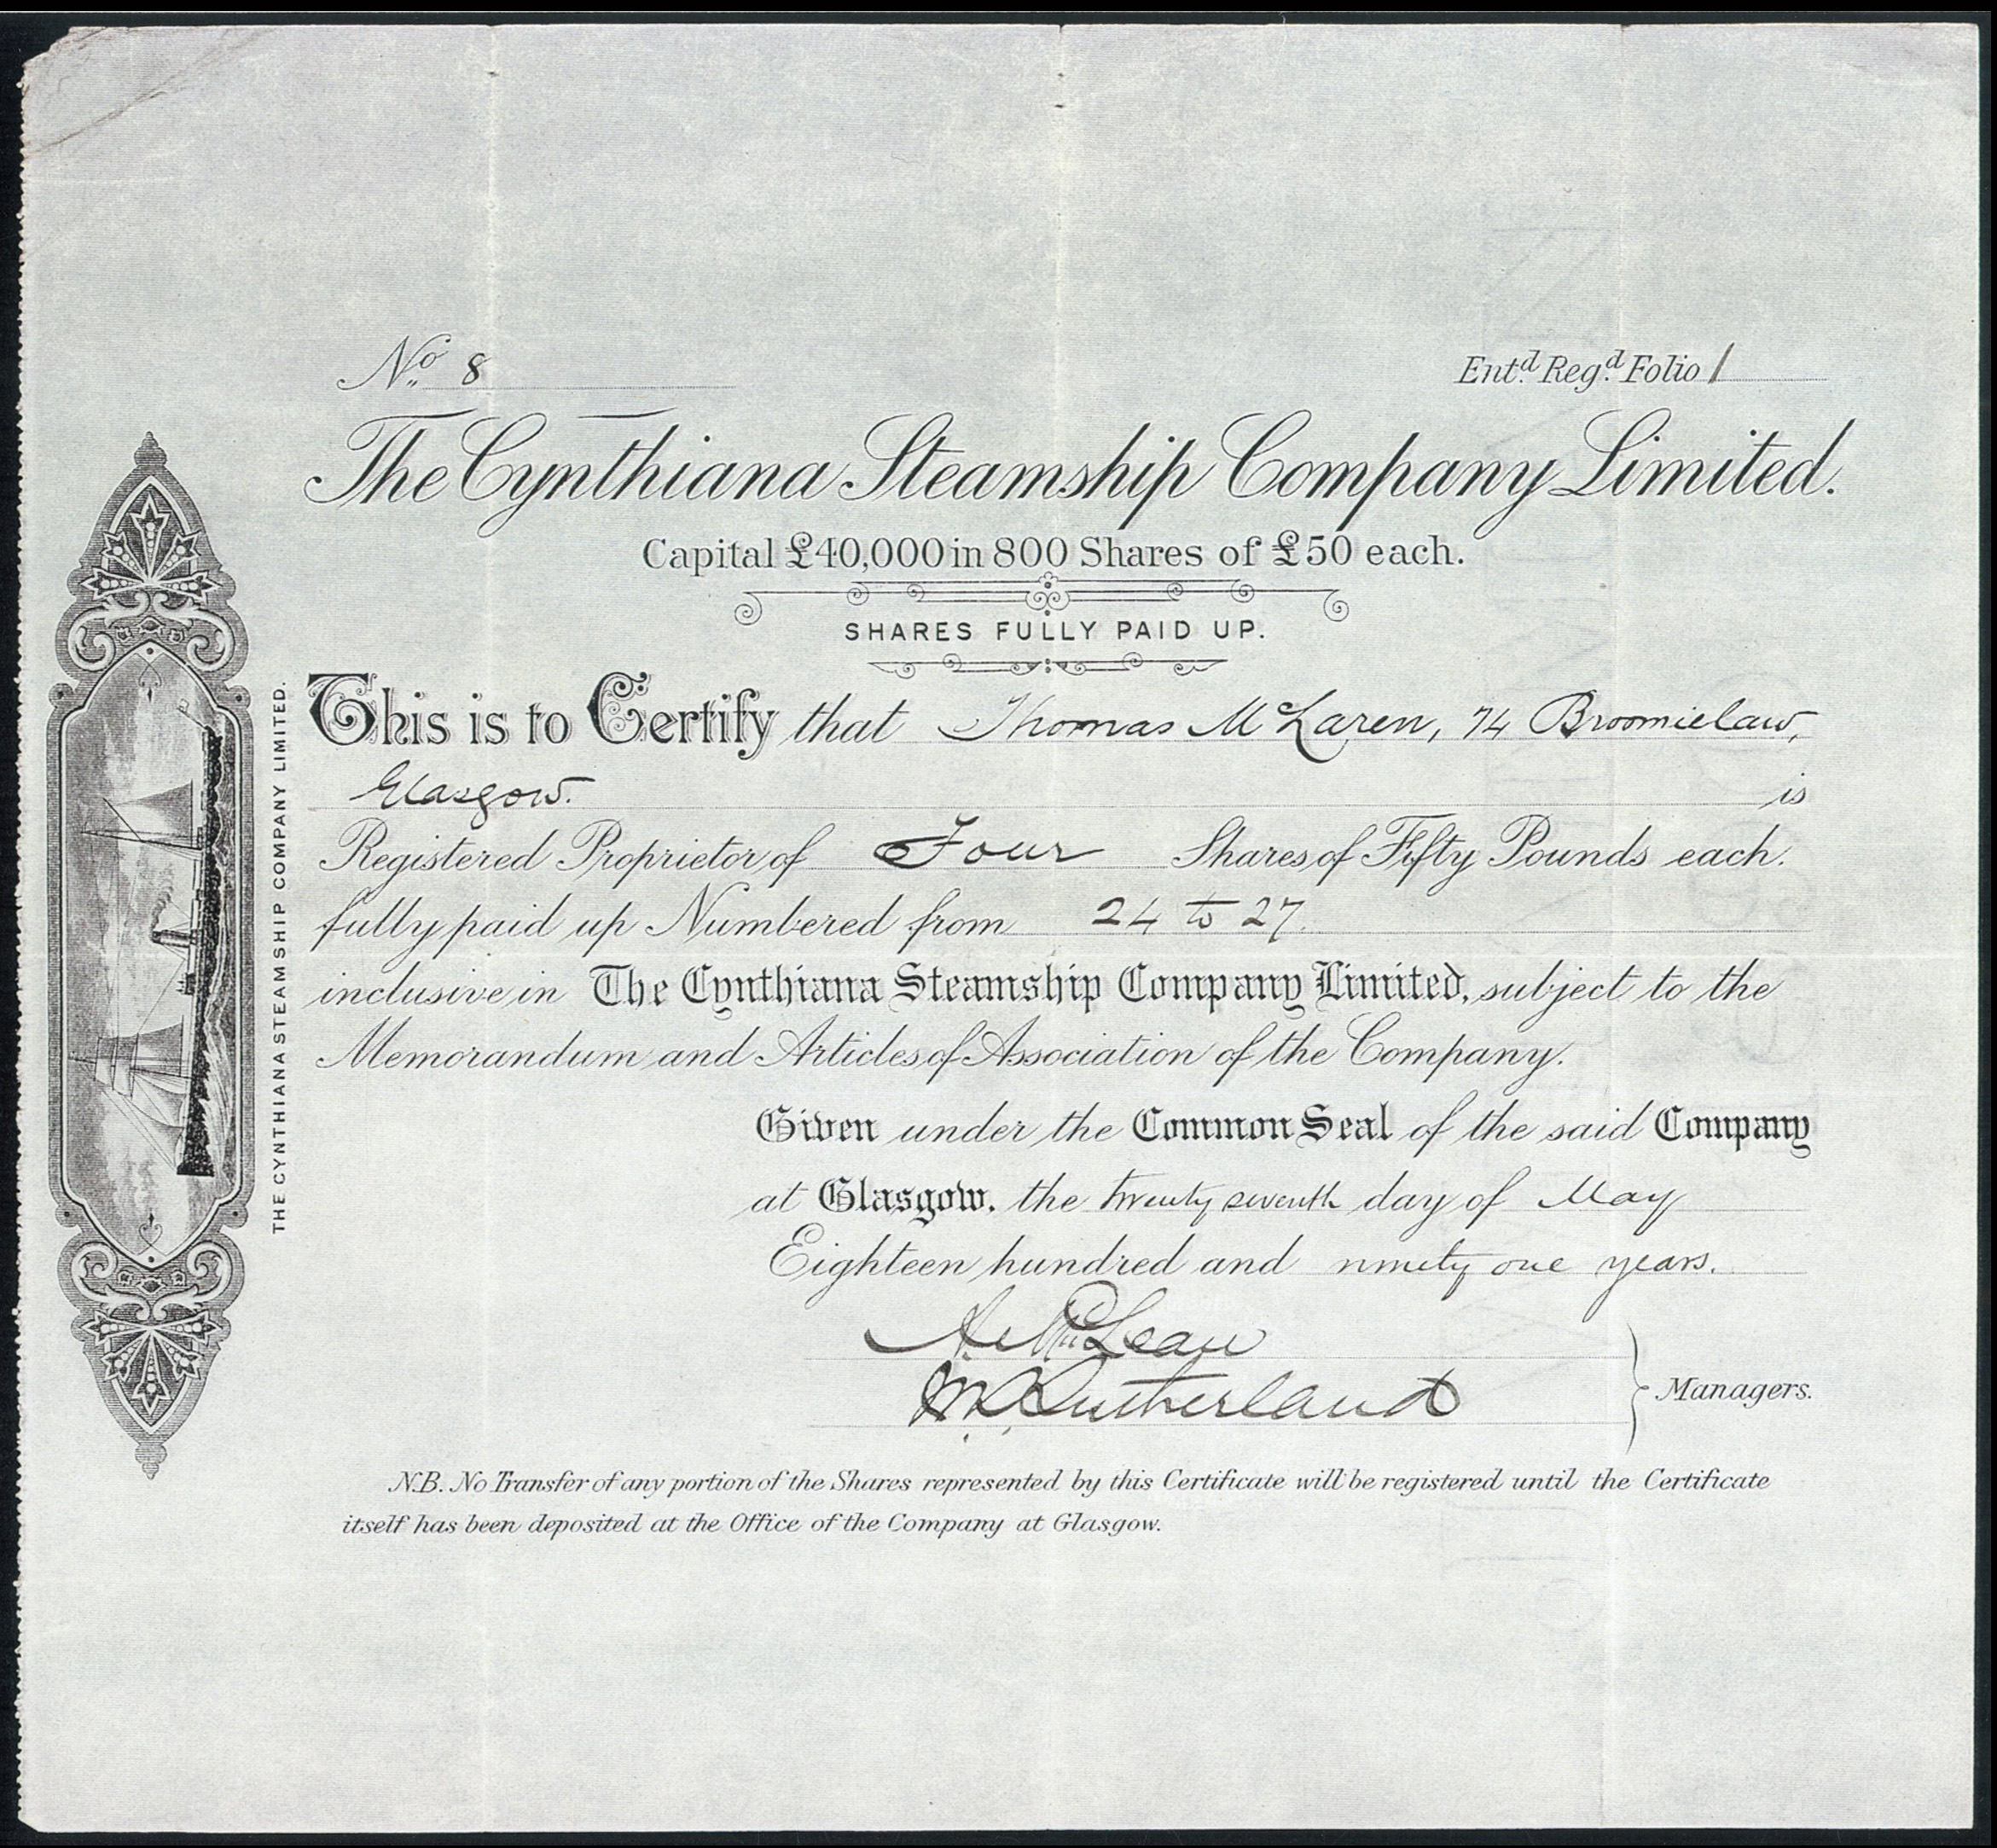 No. 8
Entd. Regd. Folio 1
The Cynthiana Steamship Company Limited.
Capital £40,000 in 800 Shares of £50 each.
SHARES FULLY PAID UP.
This is to Certify that Thomas McLaren, 74 Broomielaw,
Glasgow. is
Registered Proprietor of Four Shares of Fifty Pounds each.
fully paid up Numbered from 24 to 27.
inclusive in The Cynthiana Steamship Company Limited, subject to the
Memorandum and Articles of Association of the Company.
Given under the Common Seal of the said Company
at Glasgow, the twenty seventh day of May
Eighteen hundred and ninety one years.
A. McLean
M. Sutherland
Managers.
N.B. No Transfer of any portion of the Shares represented by this Certificate will be registered until the Certificate
itself has been deposited at the Office of the Company at Glasgow.
THE CYNTHIANA STEAMSHIP COMPANY LIMITED.